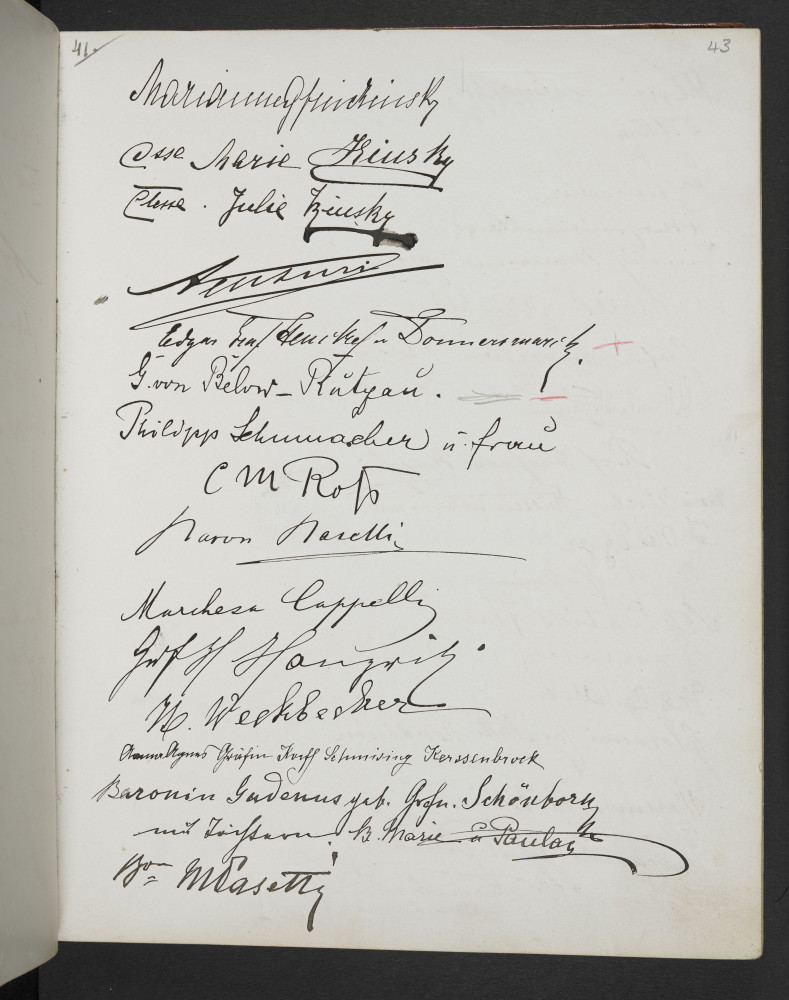 41.
43
Marianne Kinsky
Ctsse Marie Kinsky
Ctesse. Julie Kinsky
Edgar Graf Henckel v Donnersmarck.
G. von Below-Rützau.
Philipp Schumacher u. Frau
C M Roß
Baron
Marchesa Cappelli
Graf H Haugwitz
H. Weckbecker
Anna Agnes Gräfin Korff Schmising Kerssenbrock
Baronin Gudenus geb. Gräfn. Schönborn
mit Töchtern. B. Marie u Paula
Bon Masetti